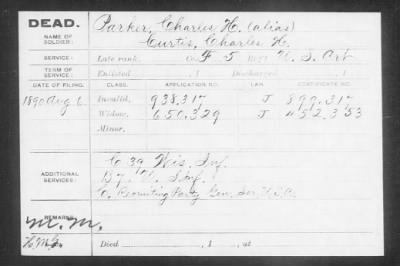 DEAD.
NAME OF SOLDIER:
Parker, Charles H. (alias)
Curtis, Charles H.
SERVICE: Late rank, Co. F 5 Reg't U. S. Art
TERM OF SERVICE: Enlisted , 1 Discharged , 1
DATE OF FILING. CLASS. APPLICATION NO. LAW. CERTIFICATE NO.
1890 Aug 6 Invalid, 938.317 J 899.317
Widow, 650.329 J 452.353
Minor,
ADDITIONAL SERVICES:
C 39 Wis. Inf.
Inf.
C. Recruiting Party Gen. Ser U.S.A.
REMARKS:
M. M.
Died , 1 , at